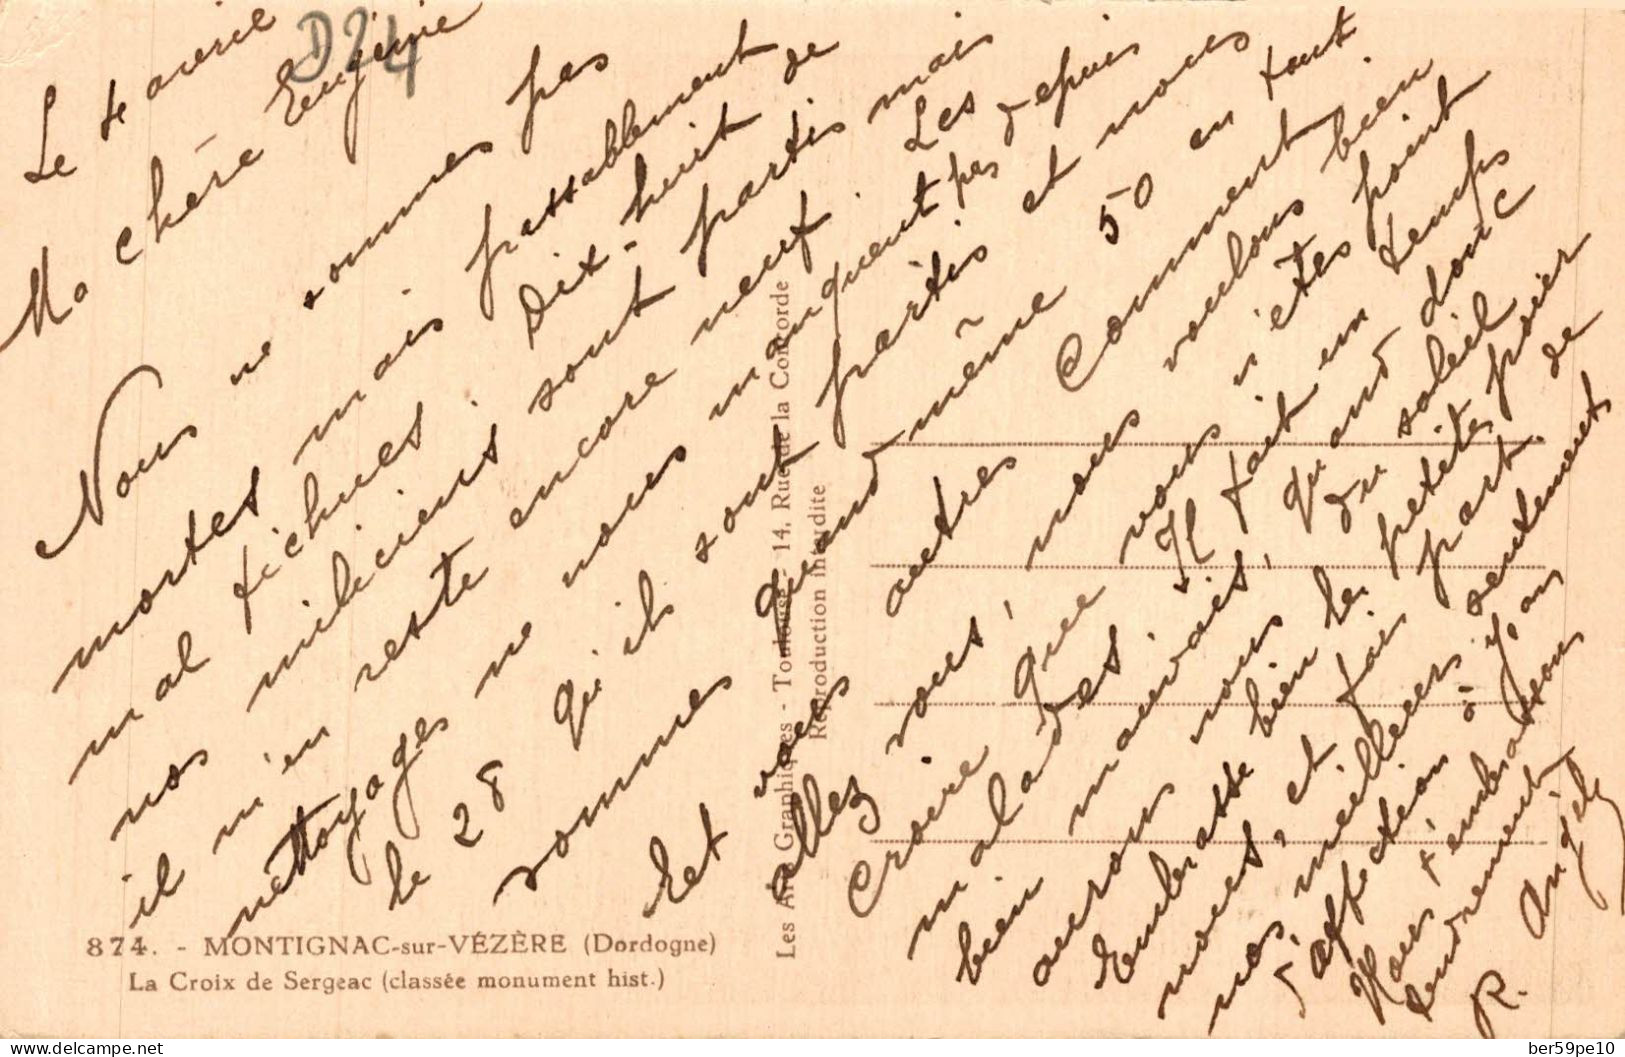 D24
Le 4 avril
Ma chère Eugénie
Nous ne sommes pas
mortes mais passablement
mal fichues. Dix-huit de
nos miliciens sont partis mais
il m'en reste encore neuf. Les
nettoyages ne nous manquent pas depuis
le 28 qu'ils sont partis et nous
sommes quand même 50 en tout.
Et vous autres Comment
allez vous, nous voulons bien
Croire que vous n'êtes point
malades. Il fait un temps
bien mauvais, quand donc
aurons nous du soleil
Embrasse bien les petites pour
nous, et fais part de
nos meilleurs sentiments
d'affection à Yvan
Nous t'embrassons
tendrement
R. Angèle
874. - MONTIGNAC-sur-VÉZÈRE (Dordogne)
La Croix de Sergeac (classée monument hist.)
Les Arts Graphiques - Toulouse - 14, Rue de la Concorde
Reproduction interdite
delcampe.net
ber59pe10